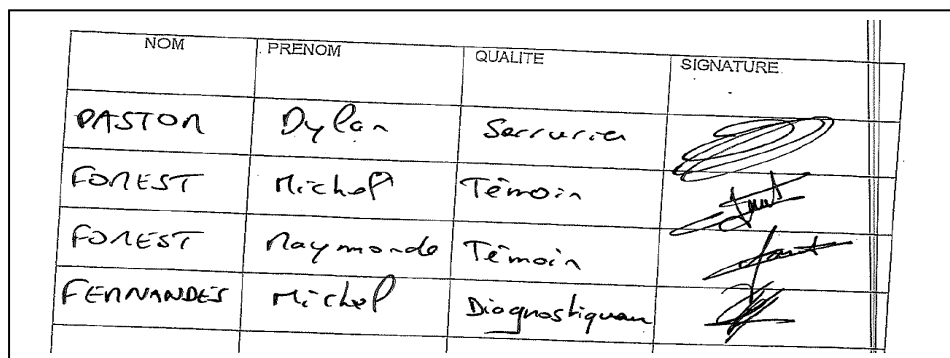 NOM PRENOM QUALITE SIGNATURE
PASTOR Dylan Serrurier
FOREST Michel Témoin
FOREST Raymonde Témoin
FERNANDES Michel Diagnostiqueur